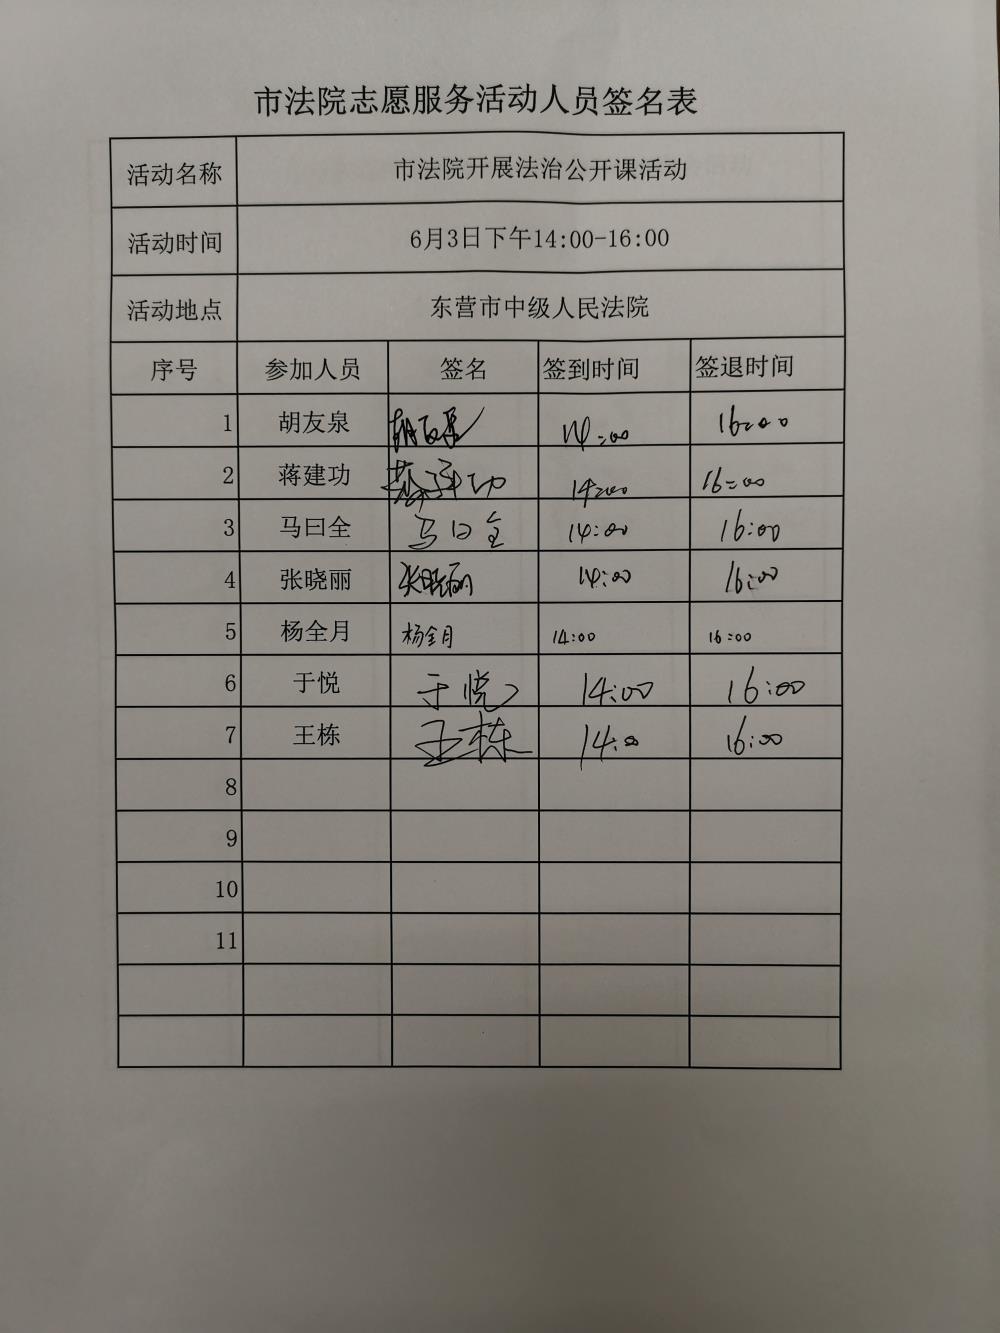 市法院志愿服务活动人员签名表
活动名称 市法院开展法治公开课活动
活动时间 6月3日下午14:00-16:00
活动地点 东营市中级人民法院
序号 参加人员 签名 签到时间 签退时间
1 胡友泉 胡友泉 14:00 16:00
2 蒋建功 蒋建功 14:00 16:00
3 马曰全 马曰全 14:00 16:00
4 张晓丽 张晓丽 14:00 16:00
5 杨全月 杨全月 14:00 16:00
6 于悦 于悦 14:00 16:00
7 王栋 王栋 14:00 16:00
8
9
10
11